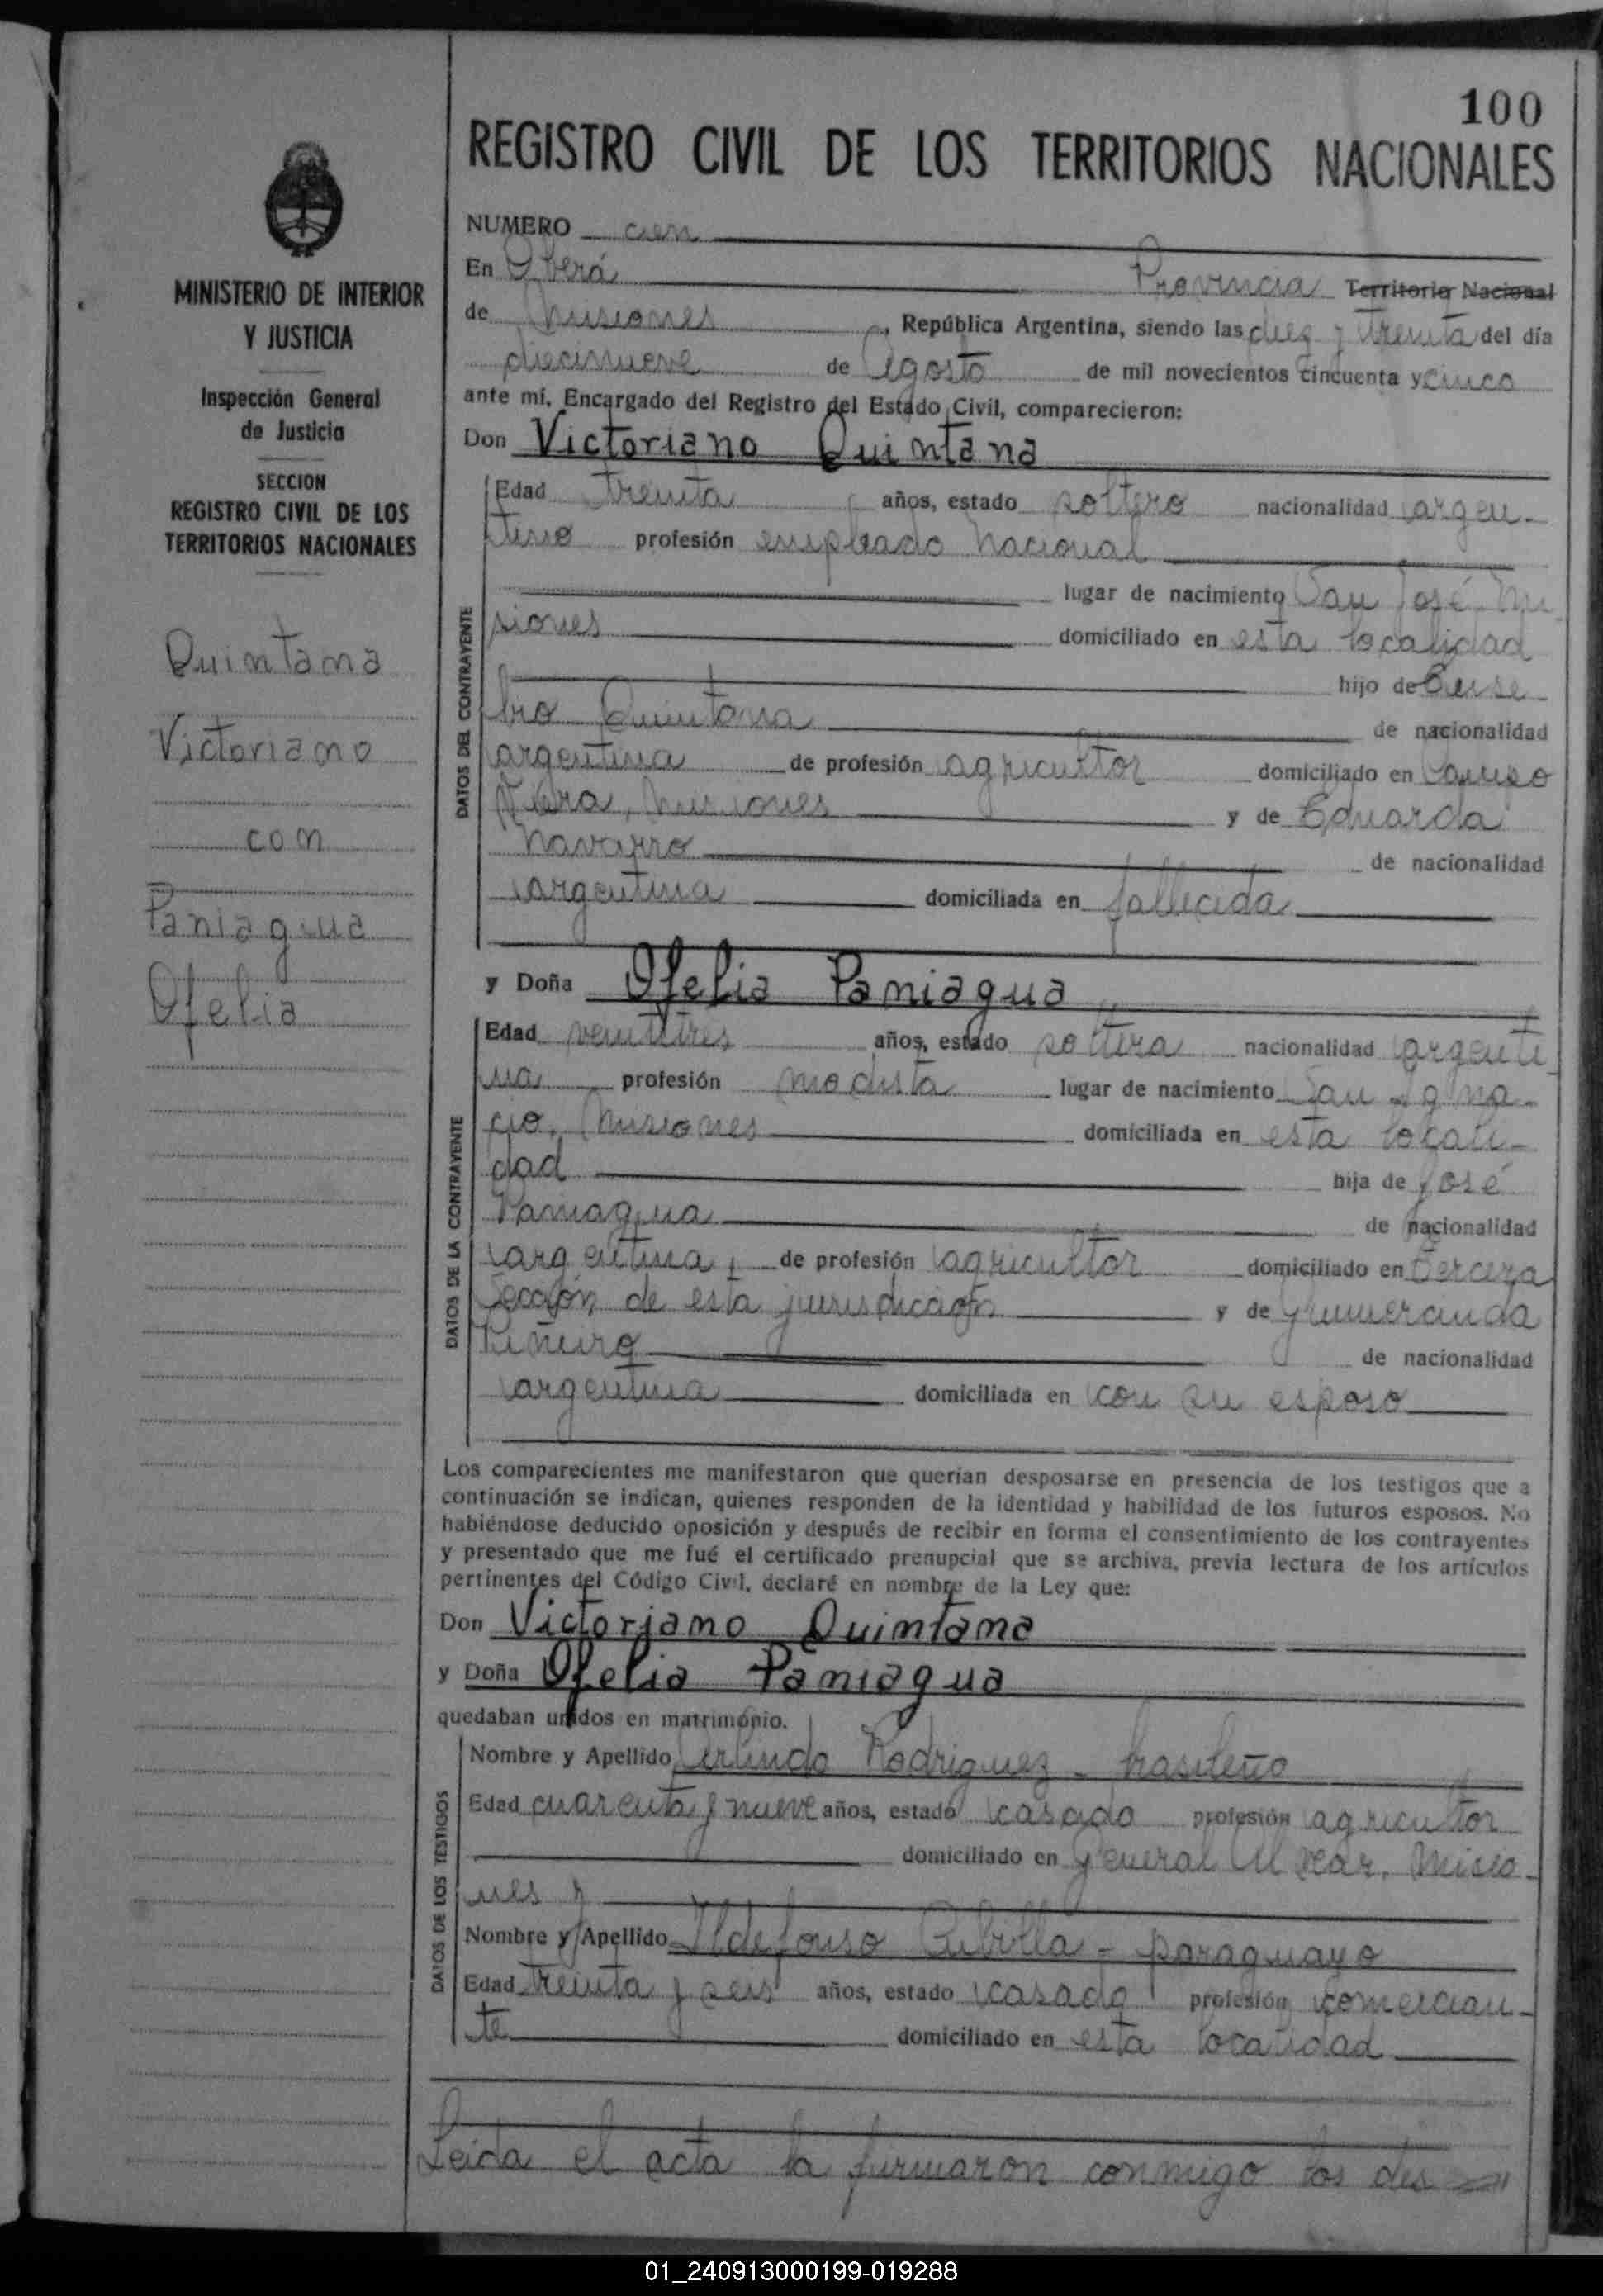 100
REGISTRO CIVIL DE LOS TERRITORIOS NACIONALES
MINISTERIO DE INTERIOR
Y JUSTICIA
Inspección General
de Justicia
SECCION
REGISTRO CIVIL DE LOS
TERRITORIOS NACIONALES
Quintana
Victoriano
con
Paniagua
Ofelia
NUMERO cien
En Oberá Provincia Territorio Nacional
de Misiones, República Argentina, siendo las diez y treinta del día
diecinueve de Agosto de mil novecientos cincuenta y cinco
ante mí, Encargado del Registro del Estado Civil, comparecieron:
Don Victoriano Quintana
DATOS DEL CONTRAYENTE
Edad treinta años, estado soltero nacionalidad argen-
tino profesión empleado Nacional
lugar de nacimiento San José, Mi
siones domiciliado en esta localidad
hijo de Euse
bio Quintana de nacionalidad
argentina de profesión agricultor domiciliado en Campo
Viera, Misiones y de Eduarda
Navarro de nacionalidad
argentina domiciliada en fallecida
y Doña Ofelia Paniagua
DATOS DE LA CONTRAYENTE
Edad veintitres años, estado soltera nacionalidad argenti
na profesión modista lugar de nacimiento San Igna-
cio, Misiones domiciliada en esta locali-
dad hija de José
Paniagua de nacionalidad
argentina, de profesión agricultor domiciliado en tercera
Sección de esta jurisdicción y de
Piñeiro de nacionalidad
argentina domiciliada en con su esposo
Los comparecientes me manifestaron que querían desposarse en presencia de los testigos que a
continuación se indican, quienes responden de la identidad y habilidad de los futuros esposos. No
habiéndose deducido oposición y después de recibir en forma el consentimiento de los contrayentes
y presentado que me fué el certificado prenupcial que se archiva, previa lectura de los artículos
pertinentes del Código Civil, declaré en nombre de la Ley que:
Don Victoriano Quintana
y Doña Ofelia Paniagua
quedaban unidos en matrimonio.
DATOS DE LOS TESTIGOS
Nombre y Apellido Arlindo Rodriguez - brasileño
Edad cuarenta y nueve años, estado casado profesión agricultor
domiciliado en General Alvear, Misio-
nes y
Nombre y Apellido Ildefonso Cubilla - paraguayo
Edad treinta y seis años, estado casado profesión comercian-
te domiciliado en esta localidad
Leida el acta la firmaron conmigo los des
01_240913000199-019288